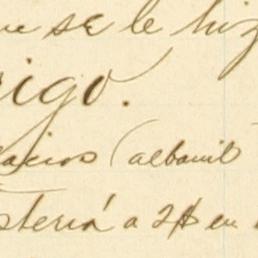 ue se le hiz
rigo.
lacios (albanil
stería a 2$ en